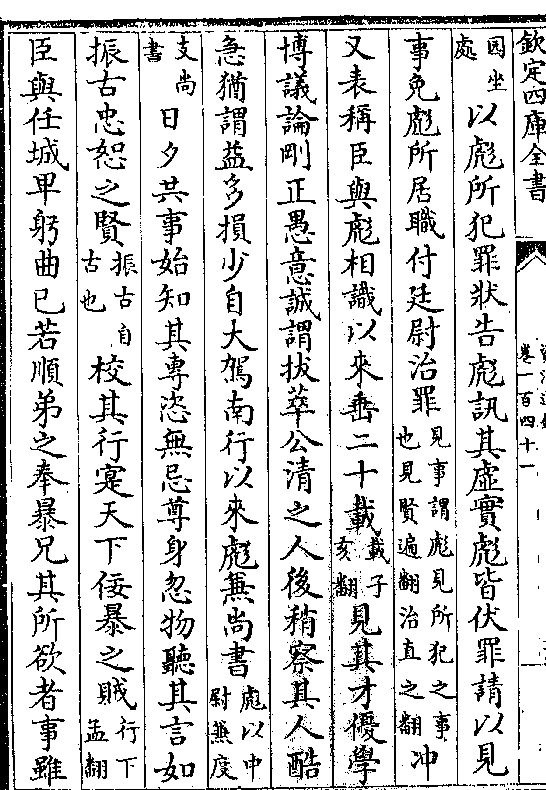 欽定四庫全書
卷一百四十一
因坐處以彪所犯罪狀告彪訊其虛實彪皆伏罪請以見
事免彪所居職付廷尉治罪見事謂彪見所犯之事也見賢遍翻治直之翻冲
又表稱臣與彪相識以來垂二十載載子亥翻見其才優學
博議論剛正愚意誠謂拔萃公清之人後稍察其人酷
急猶謂益多損少自大駕南行以來彪兼尚書彪以中尉兼度
支尚書日夕共事始知其專恣無忌尊身忽物聽其言如
振古忠恕之賢振古自古也校其行寔天下佞暴之賊行下孟翻
臣與任城卑躬曲已若順弟之奉暴兄其所欲者事雖